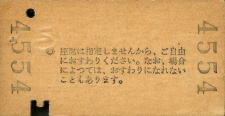 4554
座席は指定しませんから、ご自由
におすわりください。なお、場合
によつては、おすわりになれない
こともあります。
4554